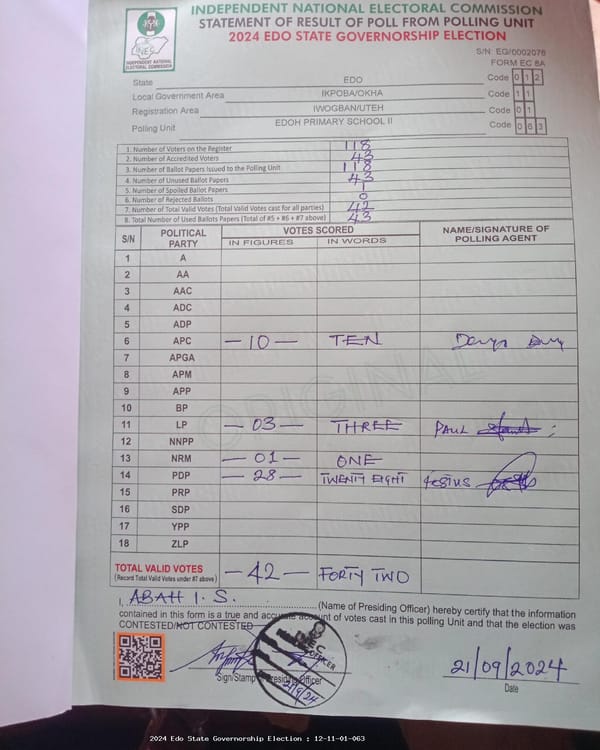 INDEPENDENT NATIONAL ELECTORAL COMMISSION
STATEMENT OF RESULT OF POLL FROM POLLING UNIT
2024 EDO STATE GOVERNORSHIP ELECTION
INEC
INDEPENDENT NATIONAL ELECTORAL COMMISSION
S/N: EG/0002076
FORM EC 8A
State EDO Code 0 1 2
Local Government Area IKPOBA/OKHA Code 1 1
Registration Area IWOGBAN/UTEH Code 0 1
Polling Unit EDOH PRIMARY SCHOOL II Code 0 6 3
1. Number of Voters on the Register 118
2. Number of Accredited Voters 43
3. Number of Ballot Papers Issued to the Polling Unit 118
4. Number of Unused Ballot Papers 43
5. Number of Spoiled Ballot Papers 1
6. Number of Rejected Ballots 0
7. Number of Total Valid Votes (Total Valid Votes cast for all parties) 42
8. Total Number of Used Ballots Papers (Total of #5 + #6 + #7 above) 43
S/N POLITICAL PARTY VOTES SCORED NAME/SIGNATURE OF POLLING AGENT
IN FIGURES IN WORDS
1 A
2 AA
3 AAC
4 ADC
5 ADP
6 APC — 10 — TEN
7 APGA
8 APM
9 APP
10 BP
11 LP — 03 — THREE PAUL
12 NNPP
13 NRM — 01 — ONE
14 PDP — 28 — TWENTY EIGHT festus
15 PRP
16 SDP
17 YPP
18 ZLP
ORIGINAL
TOTAL VALID VOTES — 42 — FORTY TWO
(Record Total Valid Votes under #7 above)
I, ABAH I. S. (Name of Presiding Officer) hereby certify that the information
contained in this form is a true and accurate account of votes cast in this polling Unit and that the election was
CONTESTED/NOT CONTESTED
Sign/Stamp Presiding Officer
INEC
21/9/24
21/09/2024
Date
2024 Edo State Governorship Election : 12-11-01-063